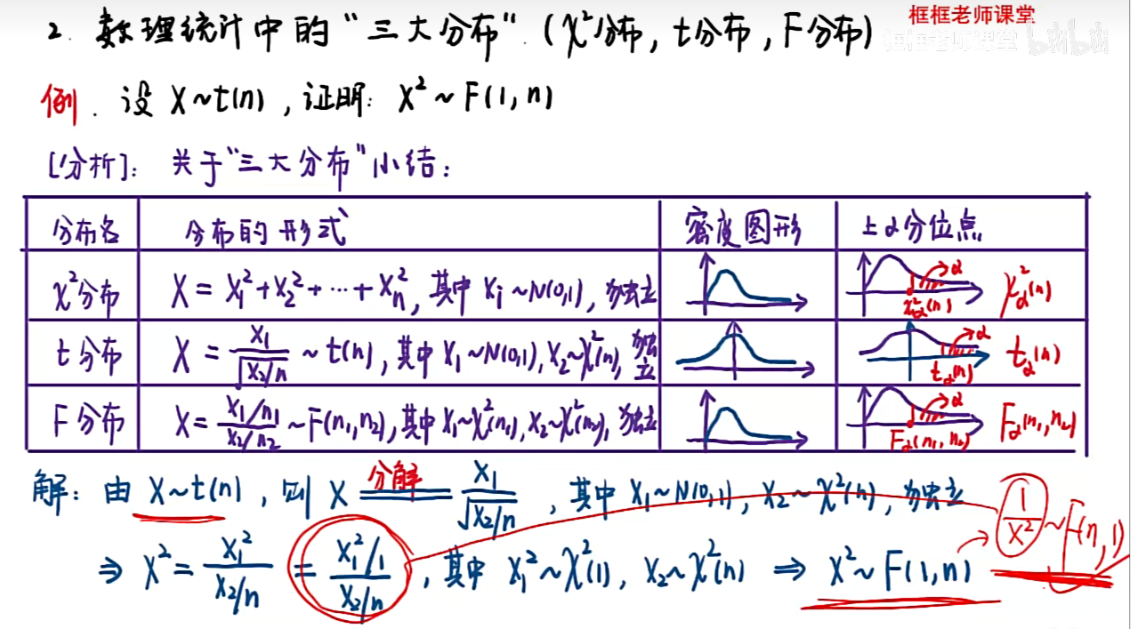 框框老师课堂
2. 数理统计中的“三大分布”. (χ²分布, t分布, F分布)
框框老师课堂 bilibili
例. 设 X~t(n), 证明: X²~F(1,n)
[分析]: 关于“三大分布”小结:
分布名 分布的形式 密度图形 上α分位点
χ²分布 X = X₁²+X₂²+…+Xₙ², 其中 Xᵢ~N(0,1), 独立 α χ²_α(n) χ²_α(n)
t分布 X = X₁/√(X₂/n) ~ t(n), 其中 X₁~N(0,1), X₂~χ²(n), 独立 α t_α(n) t_α(n)
F分布 X = (X₁/n₁)/(X₂/n₂) ~ F(n₁,n₂), 其中 X₁~χ²(n₁), X₂~χ²(n₂), 独立 α F_α(n₁,n₂) F_α(n₁,n₂)
解: 由 X~t(n), 则 X 分解 = X₁/√(X₂/n), 其中 X₁~N(0,1), X₂~χ²(n), 独立
⇒ X² = X₁²/(X₂/n) = (X₁²/1)/(X₂/n), 其中 X₁²~χ²(1), X₂~χ²(n) ⇒ X²~F(1,n) 1/X² ~F(n,1)